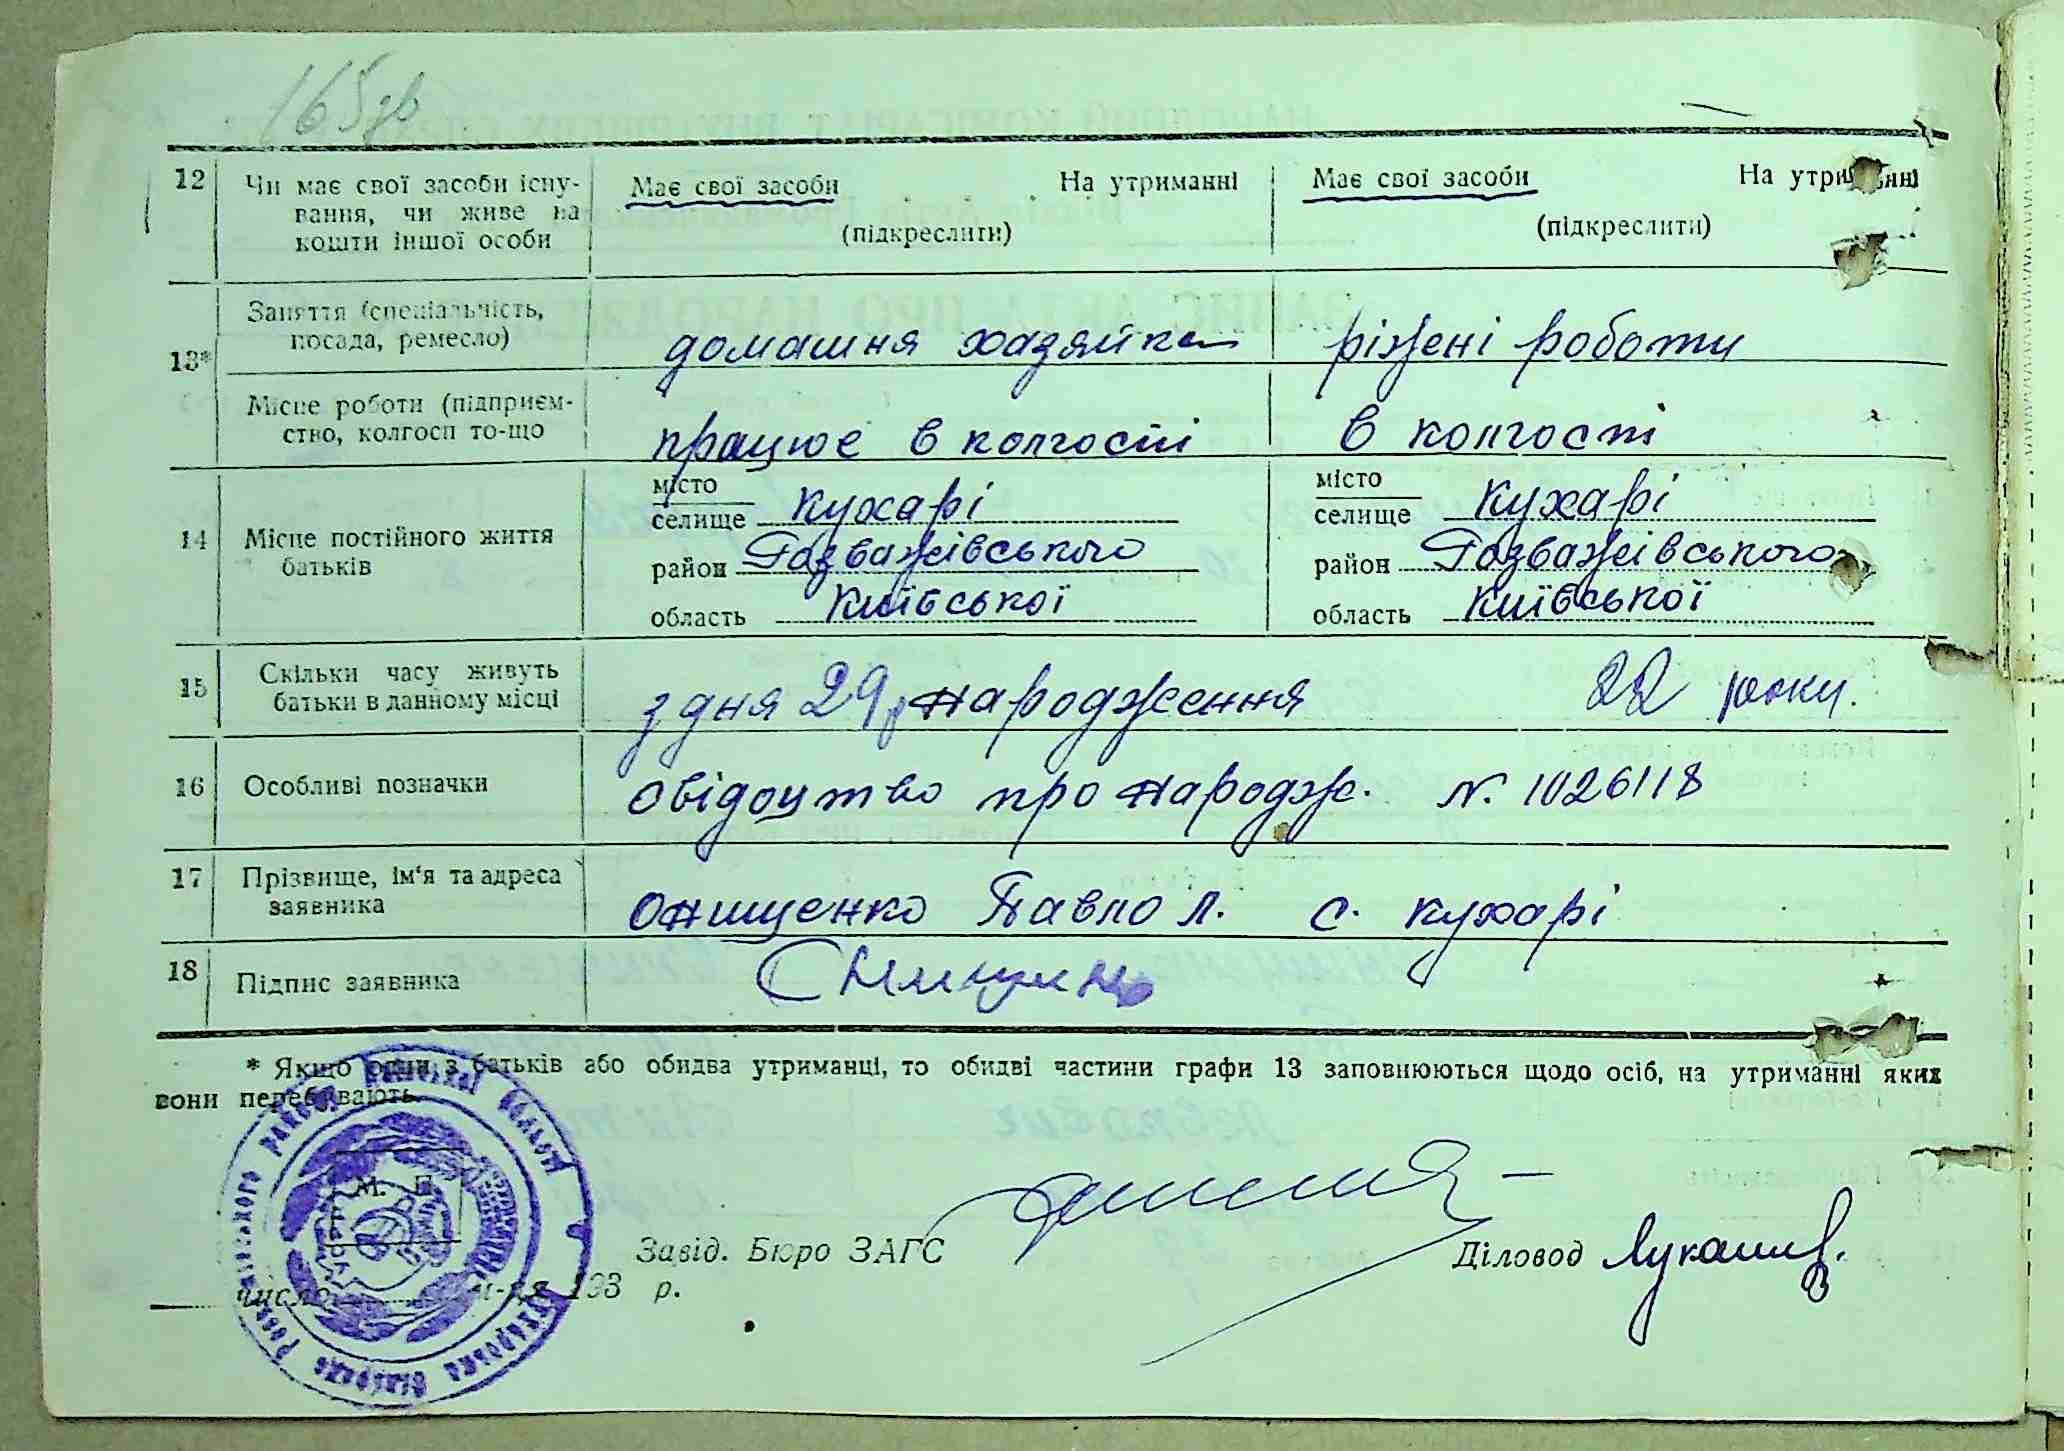 165зв
12 Чи має свої засоби існу- Має свої засоби На утриманні Має свої засоби На утриманні
вання, чи живе на (підкреслити) (підкреслити)
кошти іншої особи
13* Заняття (спеціальність, домашня хазяйка ріжені роботи
посада, ремесло)
Місце роботи (підприєм- працює в колгоспі в колгоспі
ство, колгосп то-що
14 Місце постійного життя місто місто
батьків селище Кухарі селище Кухарі
район Розважівського район Розважівського
область Київської область Київської
15 Скільки часу живуть з дня 29 р народження 22 роки.
батьки в данному місці
16 Особливі позначки свідоцтво про народж. N. 1026118
17 Прізвище, ім'я та адреса Онищенко Павло Л. с. Кухарі
заявника
18 Підпис заявника
* Якщо один з батьків або обидва утриманці, то обидві частини графи 13 заповнюються щодо осіб, на утриманні яких
вони перебувають.
М. П.
Завід. Бюро ЗАГС Діловод
число м-ця 193 р.
Кухарська сільрада Розважівського району Київської області
УСРР